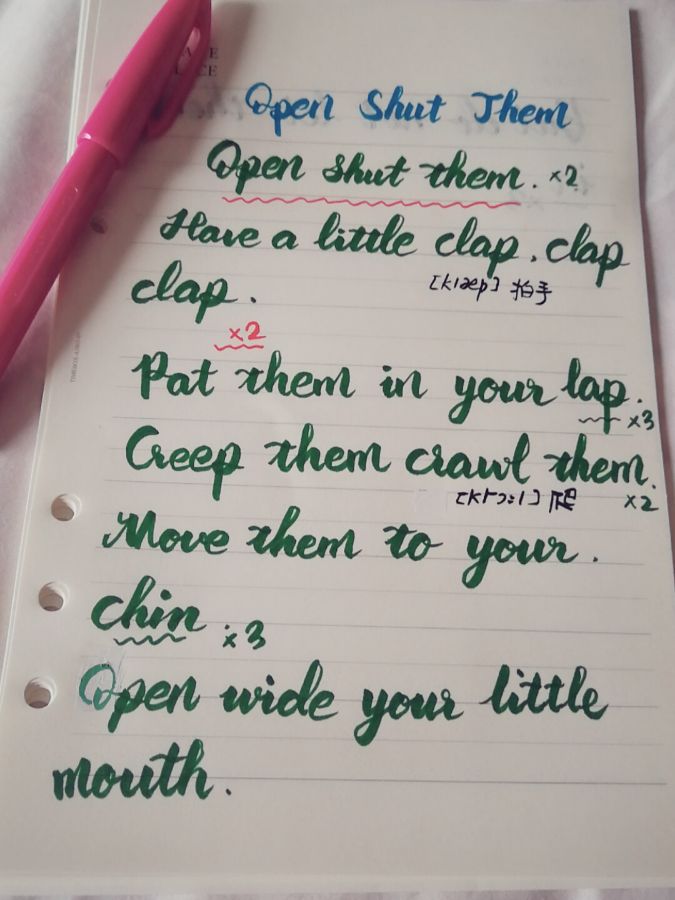 Open Shut Them
Open shut them. ×2
Have a little clap, clap
[klæp] 拍手
clap.
×2
Pat them in your lap.
×3
Creep them crawl them.
[krɔ:l] 爬
×2
Move them to your.
chin ×3
Open wide your little
mouth.